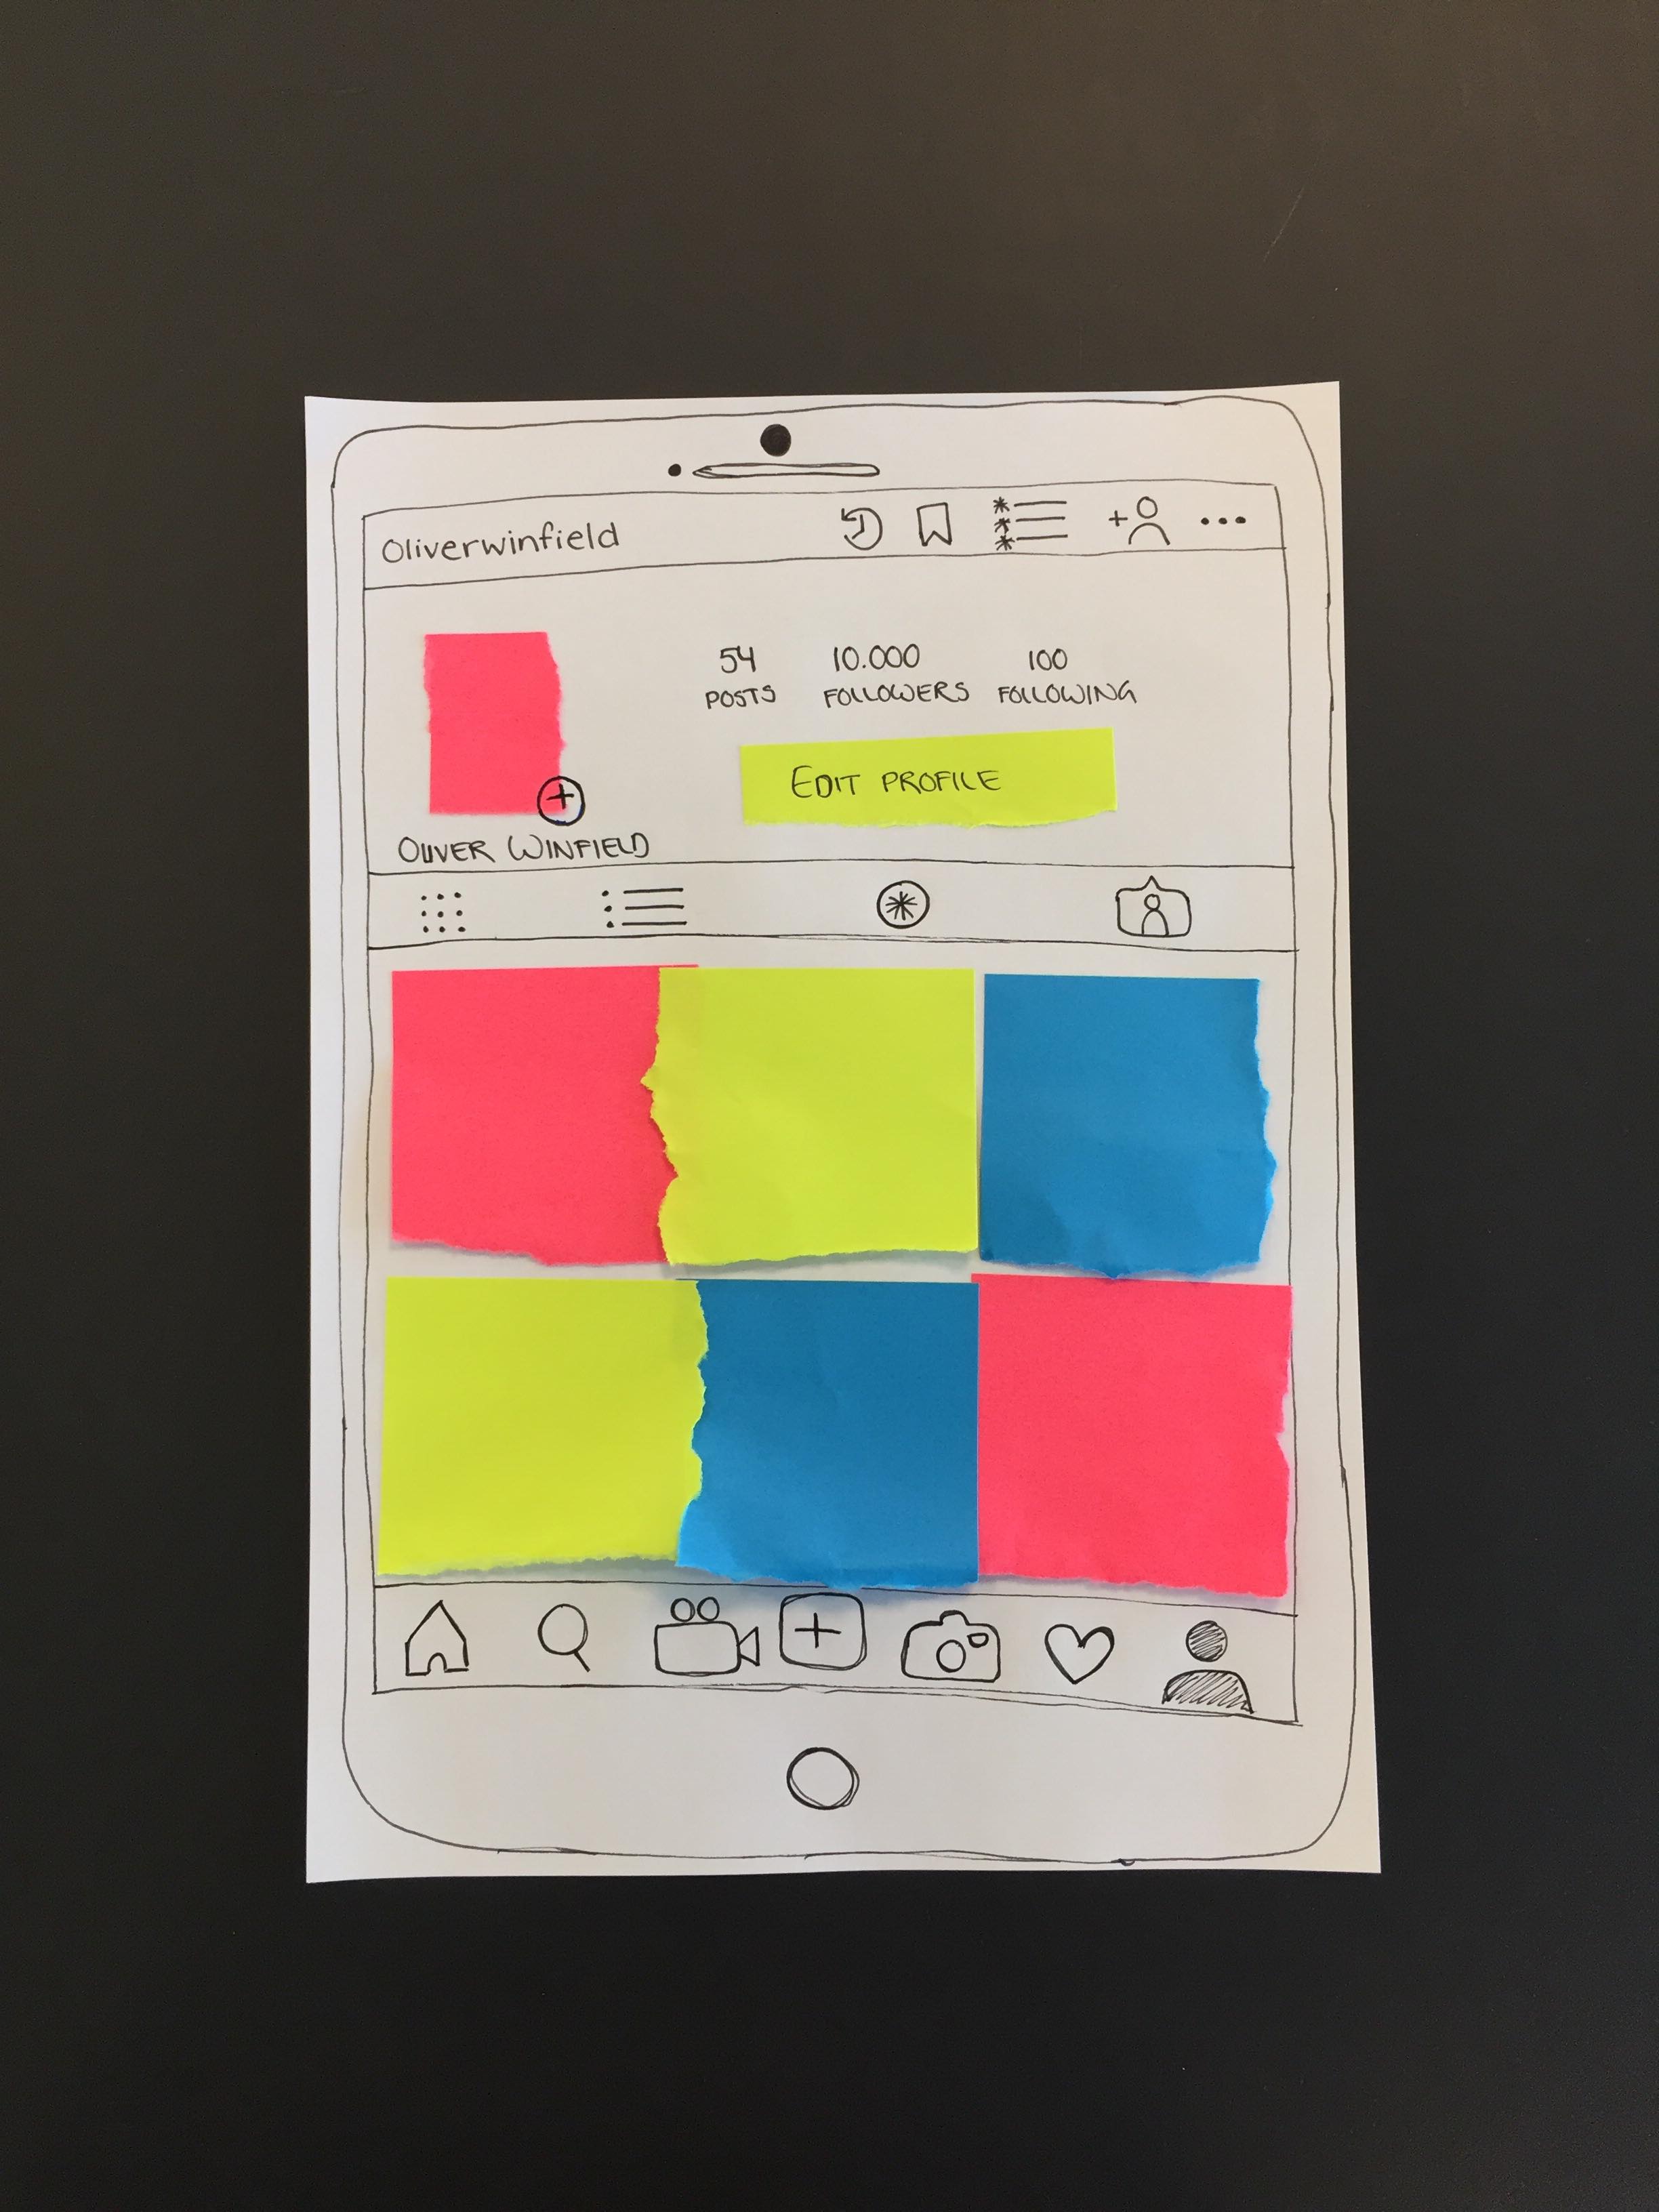 Oliverwinfield
54 10.000 100
POSTS FOLLOWERS FOLLOWING
EDIT PROFILE
OLIVER WINFIELD